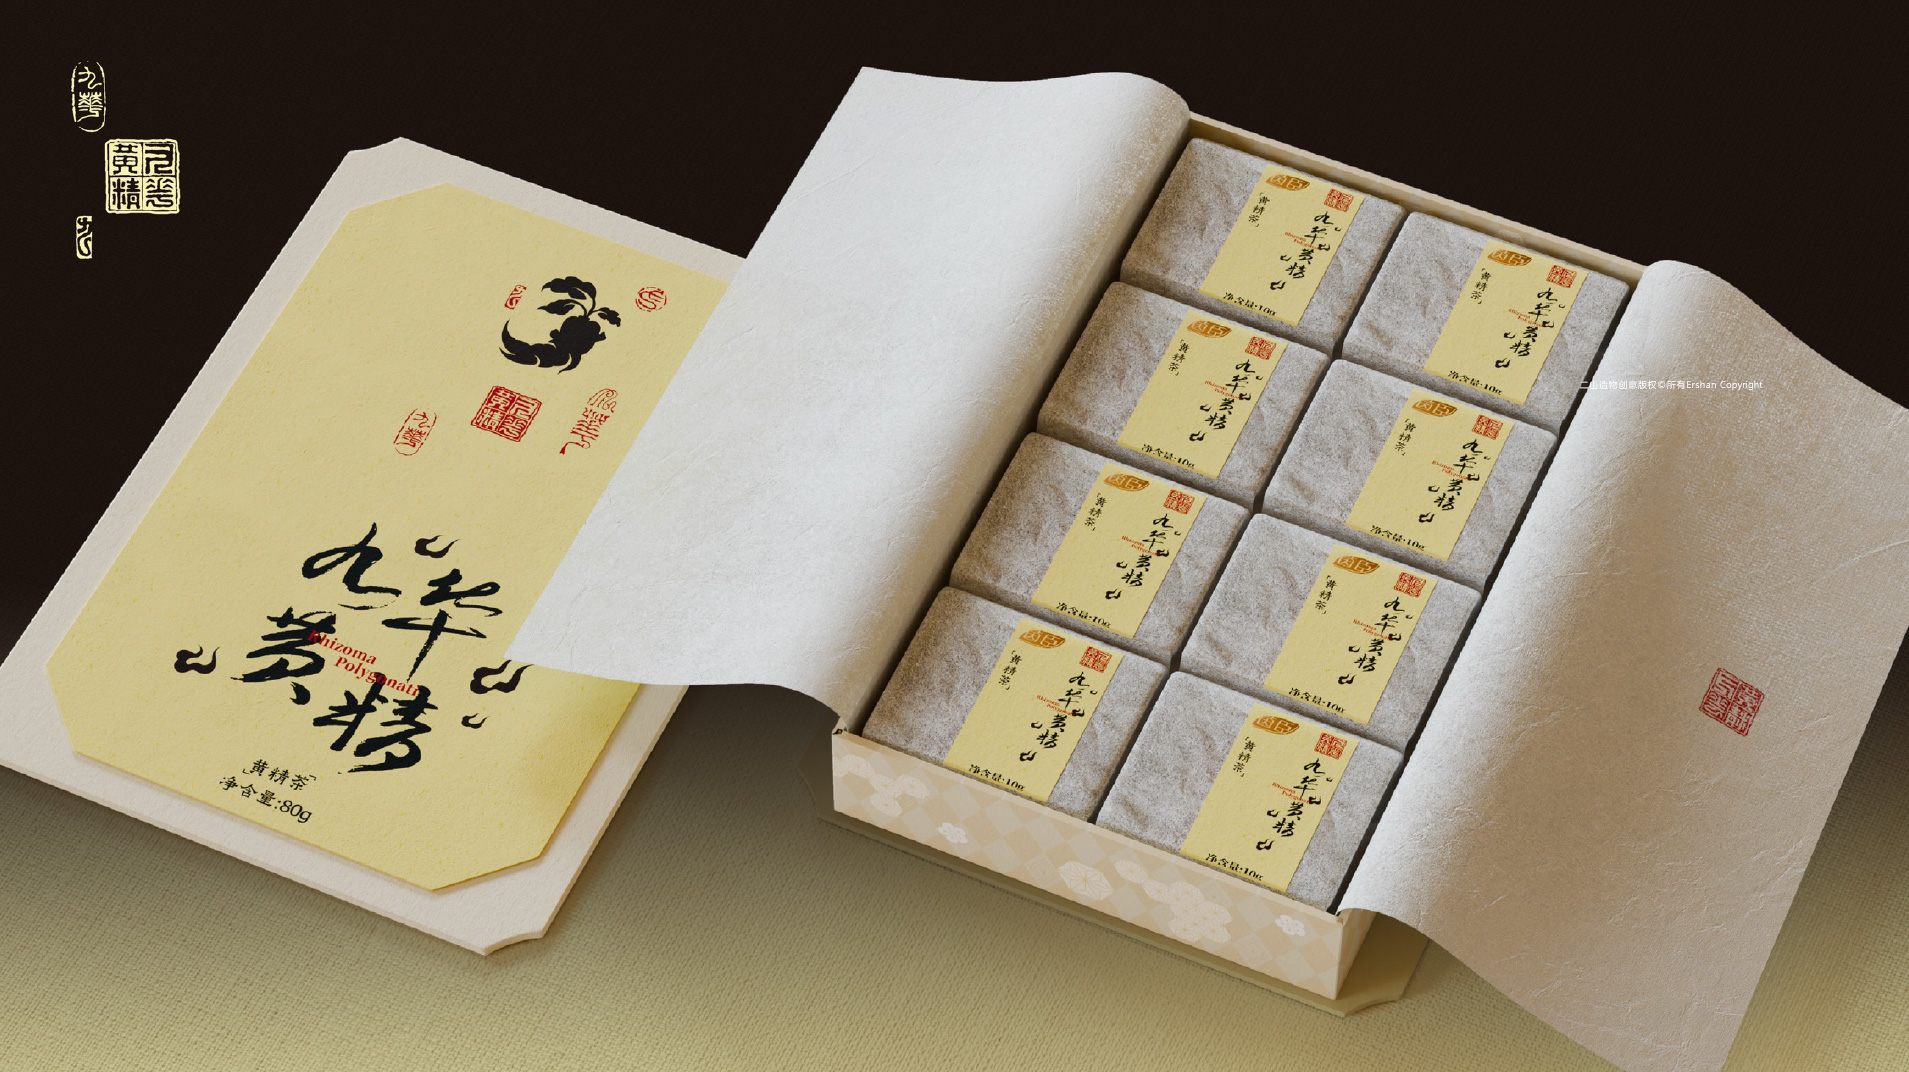 九華
九華
黄精
九
九華
九華
黄精
九华
黄精
Rhizoma
Polygonati
「黄精茶」
净含量:80g
「黄精茶」
九华
黄精
净含量:10g
「黄精茶」
九华
黄精
净含量:10g
「黄精茶」
九华
黄精
净含量:10g
「黄精茶」
九华
黄精
净含量:10g
「黄精茶」
九华
黄精
净含量:10g
「黄精茶」
九华
黄精
净含量:10g
「黄精茶」
九华
黄精
净含量:10g
「黄精茶」
九华
黄精
净含量:10g
二山造物创意版权©所有Ershan Copyright